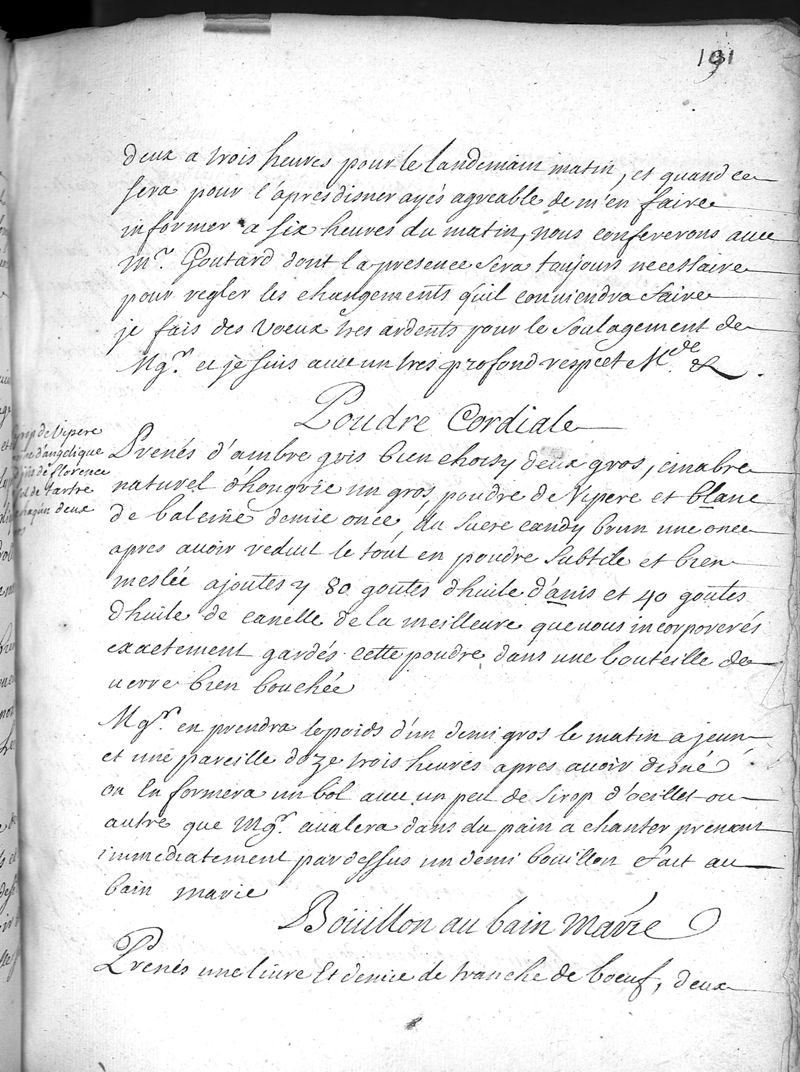 191
deux a trois heures pour le landemain matin, et quand ce
sera pour l'apresdisner ayés agreable de m'en faire
informer a six heures du matin, nous confererons avec
Mr. Goutard dont la presence sera toujours necessaire
pour regler les changements quil conviendra faire
je fais des voeux tres ardents pour le soulagement de
Mgr. et je suis avec un tres profond respect M. de &
Poudre Cordiale
de Vipere
d'angelique
de florence
de tartre
deux
Prenés d'ambre gris bien choisy deux gros, cinabre
naturel d'hongrie un gros, poudre de Vipere et blanc
de baleine demie once, du sucre candy brun une once
apres avoir reduit le tout en poudre subtile et bien
meslée ajoutes y 80 goutes d'huile d'anis et 40 goutes
d'huile de canelle de la meilleure que vous incorporerés
exactement gardés cette poudre dans une bouteille de
verre bien bouchée
Mgr. en prendra le poids d'un demi gros le matin a jeun
et une pareille doze trois heures apres avoir disné
on en formera un bol avec un peu de sirop d'oeillet ou
autre que Mgr. avalera dans du pain a chanter prenant
immediatement par dessus un demi bouillon fait au
bain marie
Bouillon au bain Marie
Prenés une livre Et demie de tranche de boeuf, deux